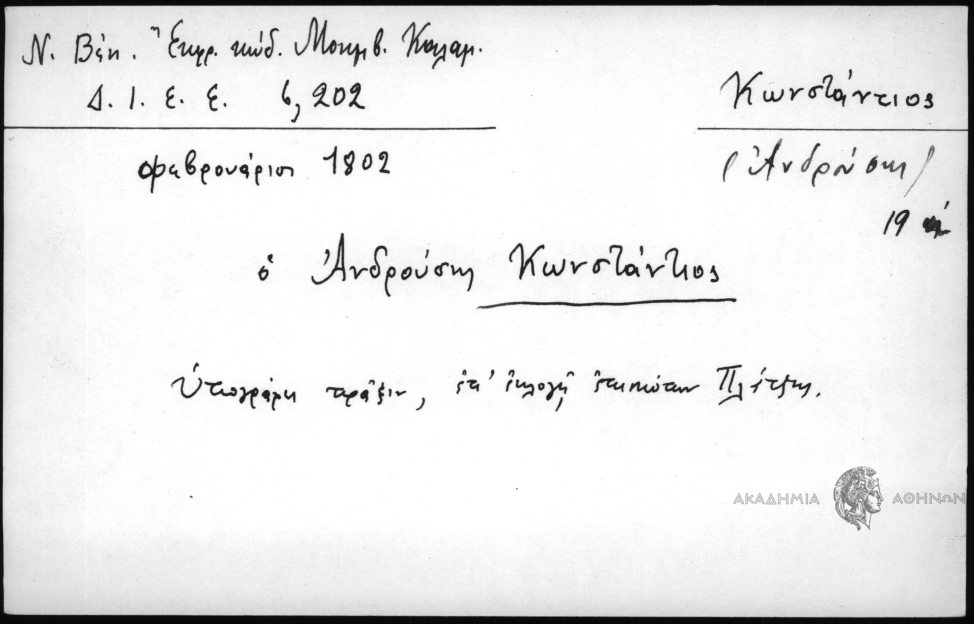 Ν. Βέη. Ἔκφρ. κώδ. Μονεμβ. Καλαμ.
Δ. Ι. Ε. Ε. 6, 202
Κωνστάντιος
(Ἀνδρούσης)
19
Φεβρουάριος 1802
ὁ Ἀνδρούσης Κωνστάντιος
ὑπογράφει πρᾶξιν, ἐπ' ἐκλογῇ ἐπισκόπων Πλάτζης.
ΑΚΑΔΗΜΙΑ ΑΘΗΝΩΝ